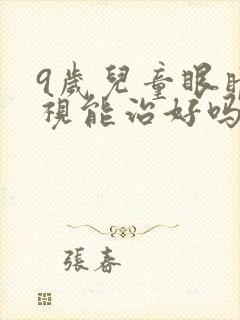 9歲兒童眼
視能治好吗
張春